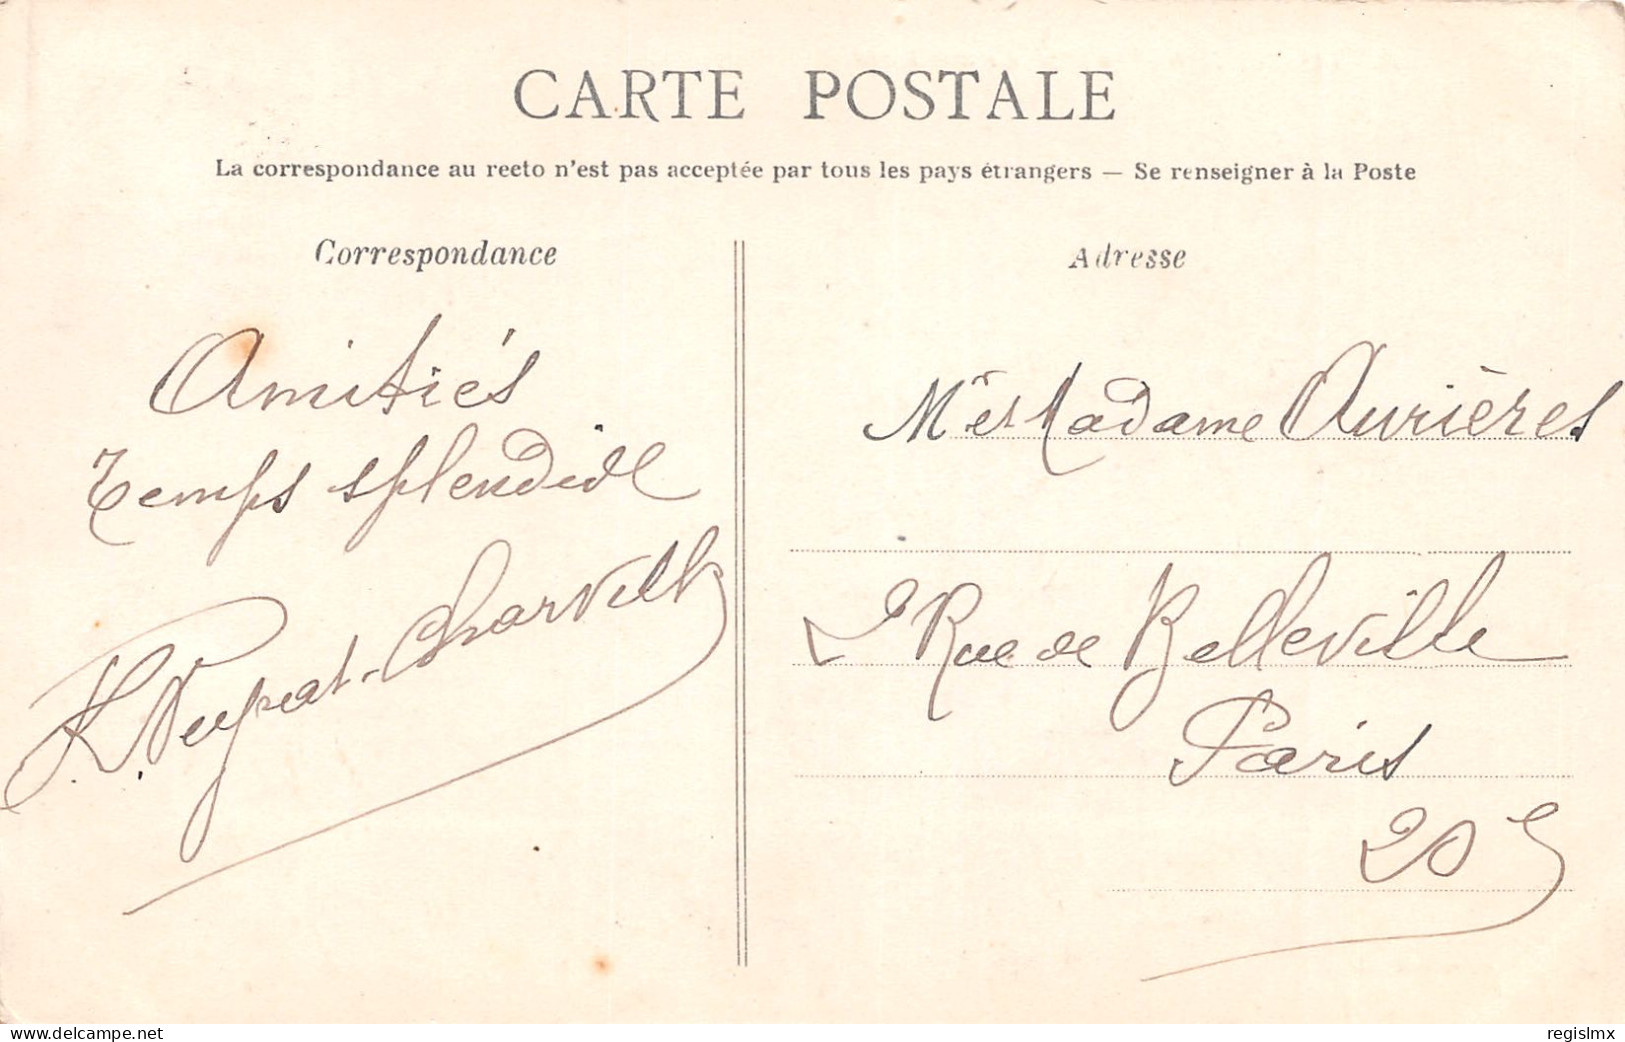 CARTE POSTALE
La correspondance au recto n'est pas acceptée par tous les pays étrangers — Se renseigner à la Poste
Correspondance
Amitiés
Temps splendide
Adresse
Mr et Madame Aurières
2 Rue de Belleville
Paris
20e
www.delcampe.net
regislmx